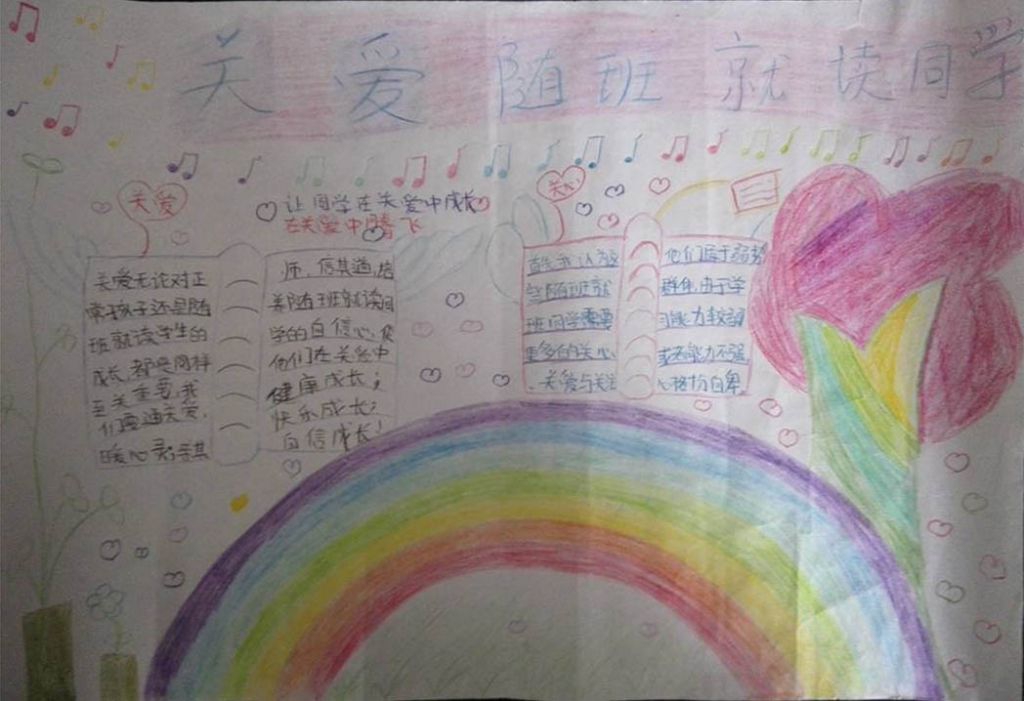 关爱随班就读同学
关爱
让同学在关爱中成长
在关爱中腾飞
关爱无论对正
常孩子还是随
班就读学生的
成长,都是同样
至关重要,我
们要通关爱,
暖心灵,寻其
师,信其道,培
养随班就读同
学的自信心,使
他们在关爱中
健康成长;
快乐成长;
自信成长!
关爱
首先我认为
随班就
班同学需要
更多的关心
、关爱与关注
他们属于弱势
群体,由于学
习能力较弱
或者能力不强
心格扮自卑